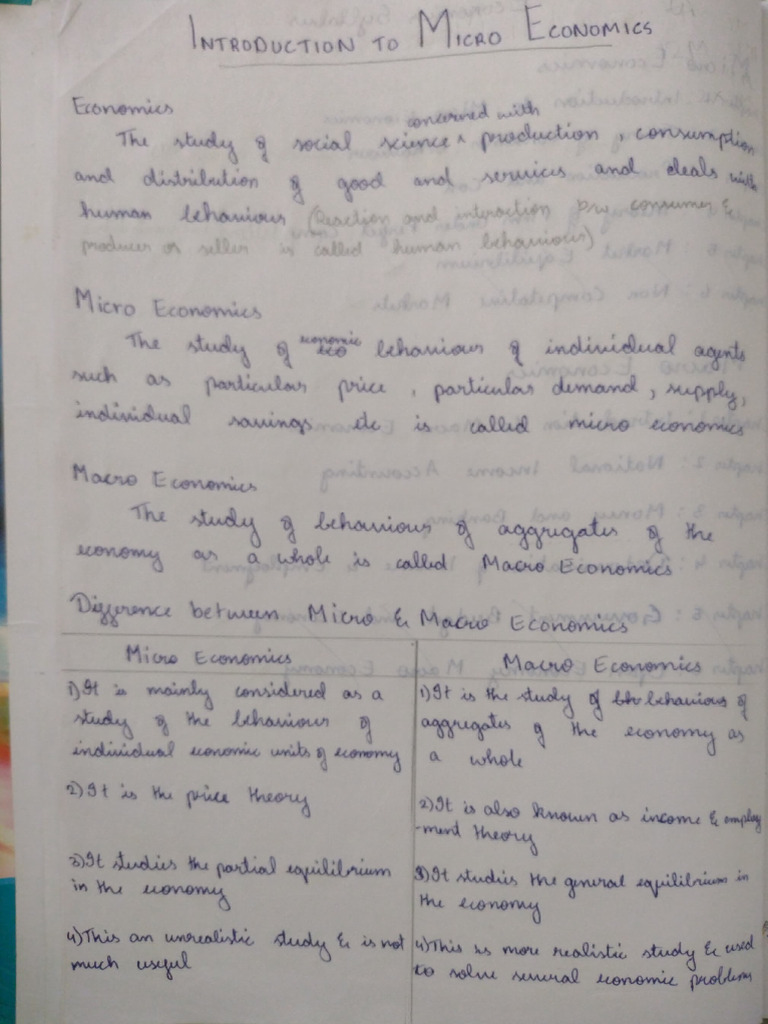 INTRODUCTION TO MICRO ECONOMICS
Economics
concerned with
The study of social science ^ production, consumption
and distribution of good and services and deals with
human behaviour (Reaction and interaction by consumer &
producer or seller is called human behaviour)
Micro Economics
economic
The study of eco behaviour of individual agents
such as particular price, particular demand, supply,
individual savings etc is called micro economics
Macro Economics
The study of behaviour of aggregates of the
economy as a whole is called Macro Economics
Difference between Micro & Macro Economics
Micro Economics
1) It is mainly considered as a
study of the behaviour of
individual economic units of economy
2) It is the price theory
3) It studies the partial equilibrium
in the economy
4) This an unrealistic study & is not
much useful
Macro Economics
1) It is the study of the behaviour of
aggregates of the economy as
a whole
2) It is also known as income & employ
-ment theory
3) It studies the general equilibrium in
the economy
4) This is more realistic study & used
to solve several economic problems